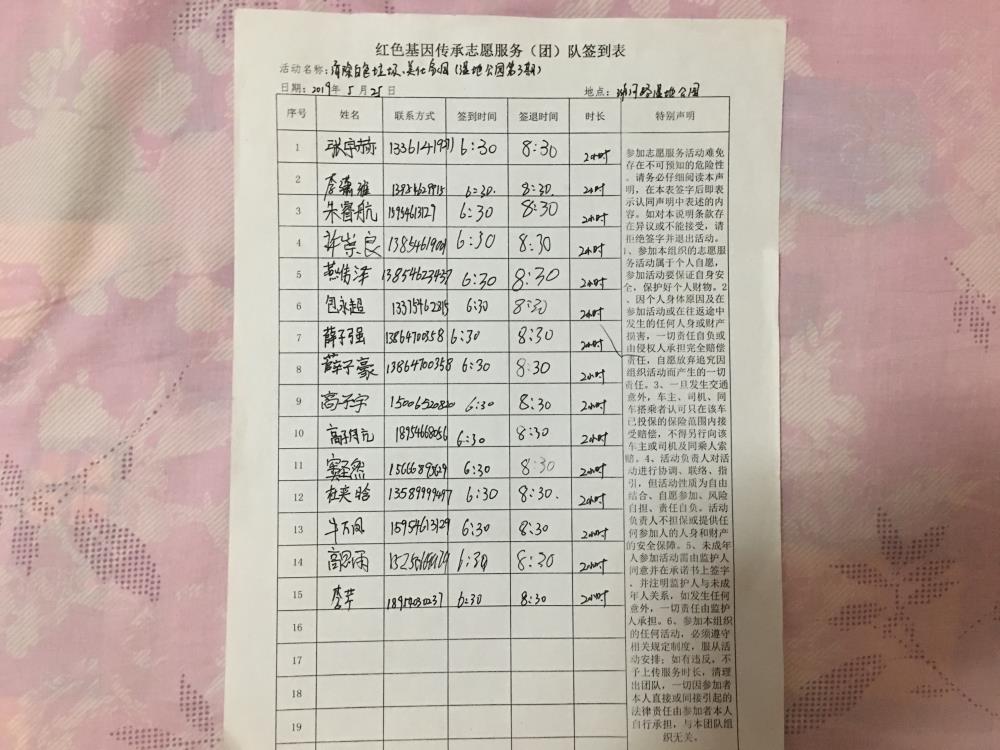 红色基因传承志愿服务（团）队签到表
活动名称：清除白色垃圾、美化家园（湿地公园第3期）
日期：2019年 5 月 25 日 地点： 湿地公园
序号 姓名 联系方式 签到时间 签退时间 时长 特别声明
1 张宇赫 6:30 8:30 2小时
2 6:30. 8:30. 2小时
3 朱睿航 6:30 8:30 2小时
4 许崇良 6:30 8:30 2小时
5 13854623437 6:30 8:30 2小时
6 包永超 6:30 8:30 2小时
7 薛子强 13864700358 6:30 8:30 2小时
8 薛子豪 13864700358 6:30 8:30 2小时
9 高子宇 15006520820 6:30 8:30 2小时
10 18954668056 6:30 8:30 2小时
11 6:30 8:30 2小时
12 13589999497 6:30 8:30. 2小时
13 牛万凤 15954613129 6:30 8:30 2小时
14 高思雨 6:30 8:30 2小时
15 李芹 6:30 8:30 2小时
16
17
18
19
参加志愿服务活动难免
存在不可预知的危险性
。请务必仔细阅读本声
明，在本表签字后即表
示认同声明中表述的内
容。如对本说明条款存
在异议或不能接受，请
拒绝签字并退出活动。
1、参加本组织的志愿服
务活动属于个人自愿，
参加活动要保证自身安
全，保护好个人财物。2
、因个人身体原因及在
参加活动或在往返途中
发生的任何人身或财产
损害，一切责任自负或
由侵权人承担完全赔偿
责任，自愿放弃追究因
组织活动而产生的一切
责任。3、一旦发生交通
意外，车主、司机、同
车搭乘者认可只在该车
已投保的保险范围内接
受赔偿，不得另行向该
车主或司机及同乘人索
赔。4、活动负责人对活
动进行协调、联络、指
引，但活动性质为自由
结合、自愿参加、风险
自担、责任自负。活动
负责人不担保或提供任
何参加人的人身和财产
的安全保障。5、未成年
人参加活动需由监护人
同意并在承诺书上签字
，并注明监护人与未成
年人关系，如发生任何
意外，一切责任由监护
人承担。6、参加本组织
的任何活动，必须遵守
相关规定制度，服从活
动安排；如有违反，不
予上传服务时长，清理
出团队，一切因参加者
本人直接或间接引起的
法律责任由参加者本人
自行承担，与本团队组
织无关。